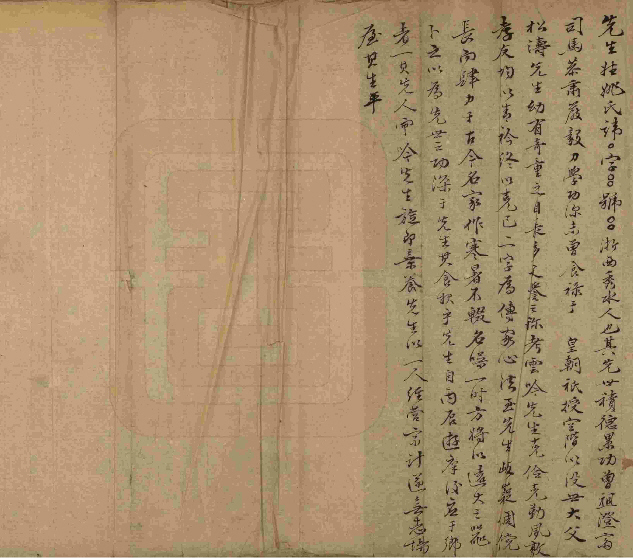 先生姓姚氏諱○字○號○浙西秀水人也其先世積德累功曾祖澄寰
司馬恭肅嚴毅力學功深未曾食祿于 皇朝祇授空階以没世大父
松濤先生幼有奇童之目長多文譽之弥考雲吟先生克儉克勤風敦
孝友均以青衿終以克己二字為傳家心法至先生岐嶷周倪
長而肆力于古今名家作寒暑不輟名噪一时方将以遠大之器
卜之以為先世之功深于先生其食報乎先生自丙辰遊庠後至于鄉
者一見先人而吟先生旋即棄養先生以一人經營家計遂無志場
屋其生平